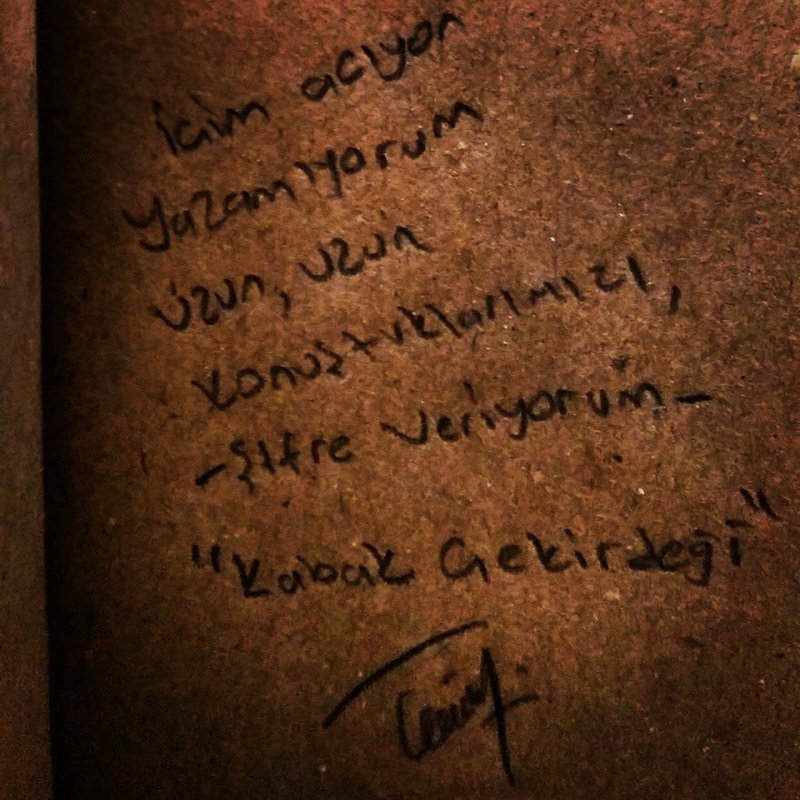 İçim acıyor
Yazamıyorum
uzun, uzun
konuştuklarımızı,
-Şifre veriyorum-
"Kabak Çekirdeği"